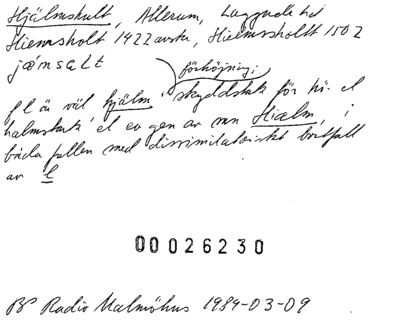 Hjälmshult, Allerum, Luggude hd
Hiemsholt 1422 avskr, Hielmsholtt 1502
jæmsɐlt
förhöjning;
fl är väl hjälm 'skyddstak för hö el
halmstack' el ev gen av mn Hiælm, i
båda fallen med dissimilatoriskt bortfall
av l
00026230
BP Radio Malmöhus 1984-03-09